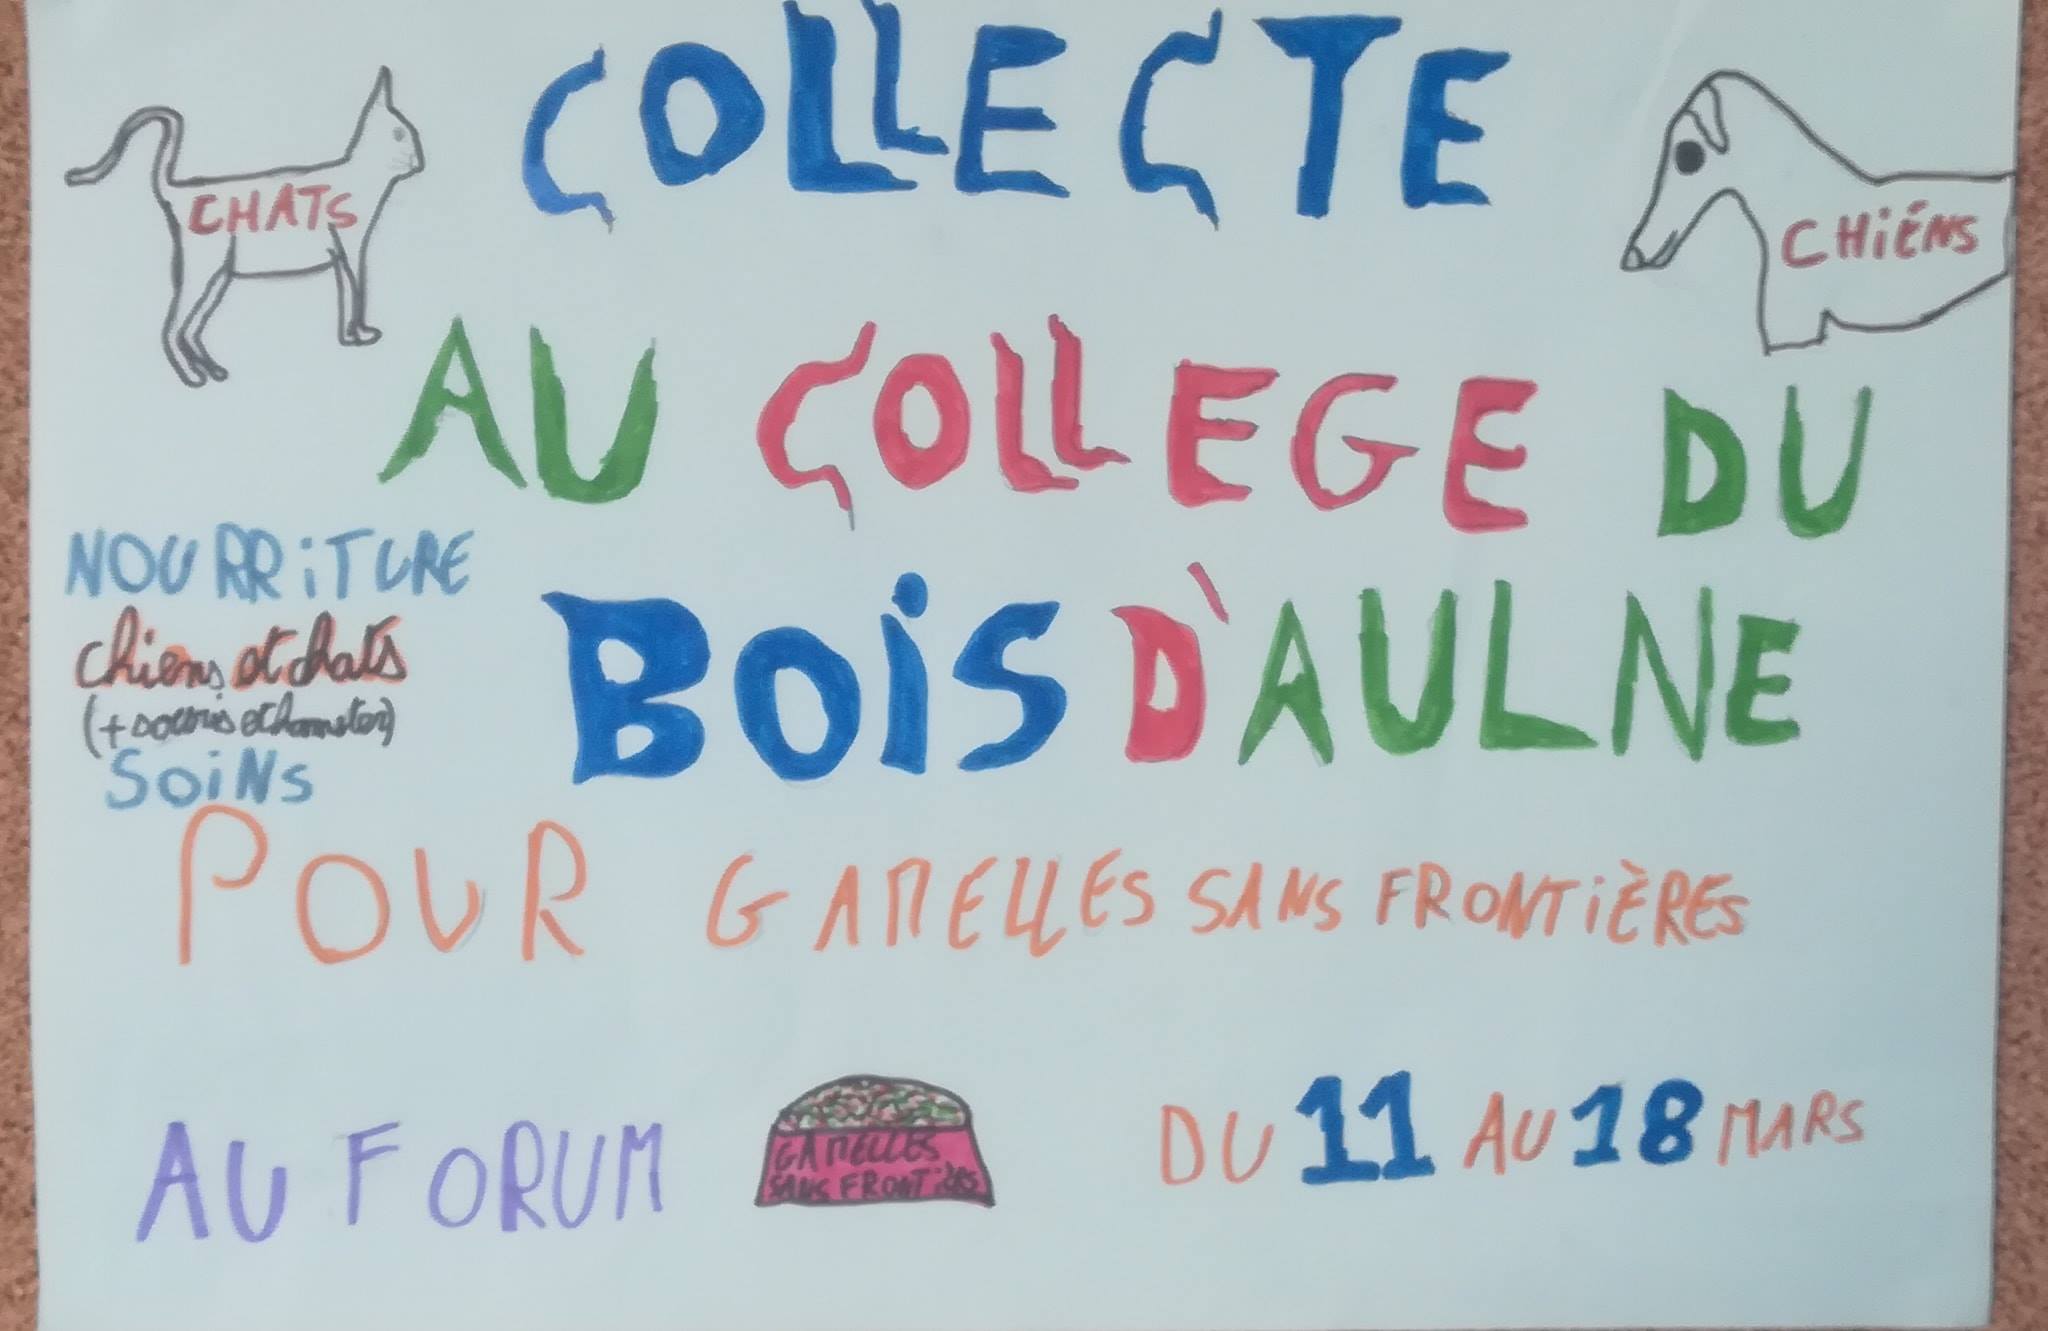 COLLECTE
CHATS
CHIÉNS
AU COLLEGE DU
BOIS D'AULNE
NOURRITURE
chiens et chats
(+ souris et hamster)
SOINS
POUR GAMELLES SANS FRONTIÈRES
AU FORUM
GAMELLES
SANS FRONTIÈRES
DU 11 AU 18 MARS